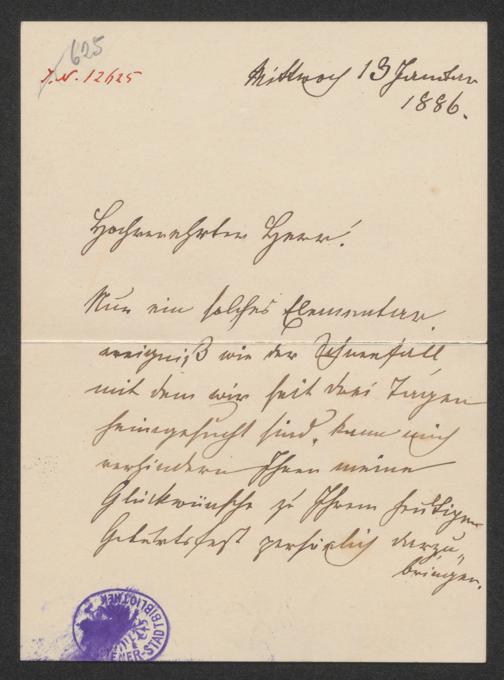 625
I.N. 12625
Mittwoch 13 Januar
1886.
Hochverehrter Herr!
Nur ein solches Elementar
ereigniß wie der Schneefall
mit dem wir seit drei Tagen
heimgesucht sind, kann mich
verhindern Ihnen meine
Glückwünsche zu Ihrem heutigen
Geburtsfest persönlich darzu„
bringen.
WIENER-STADTBIBLIOTHEK